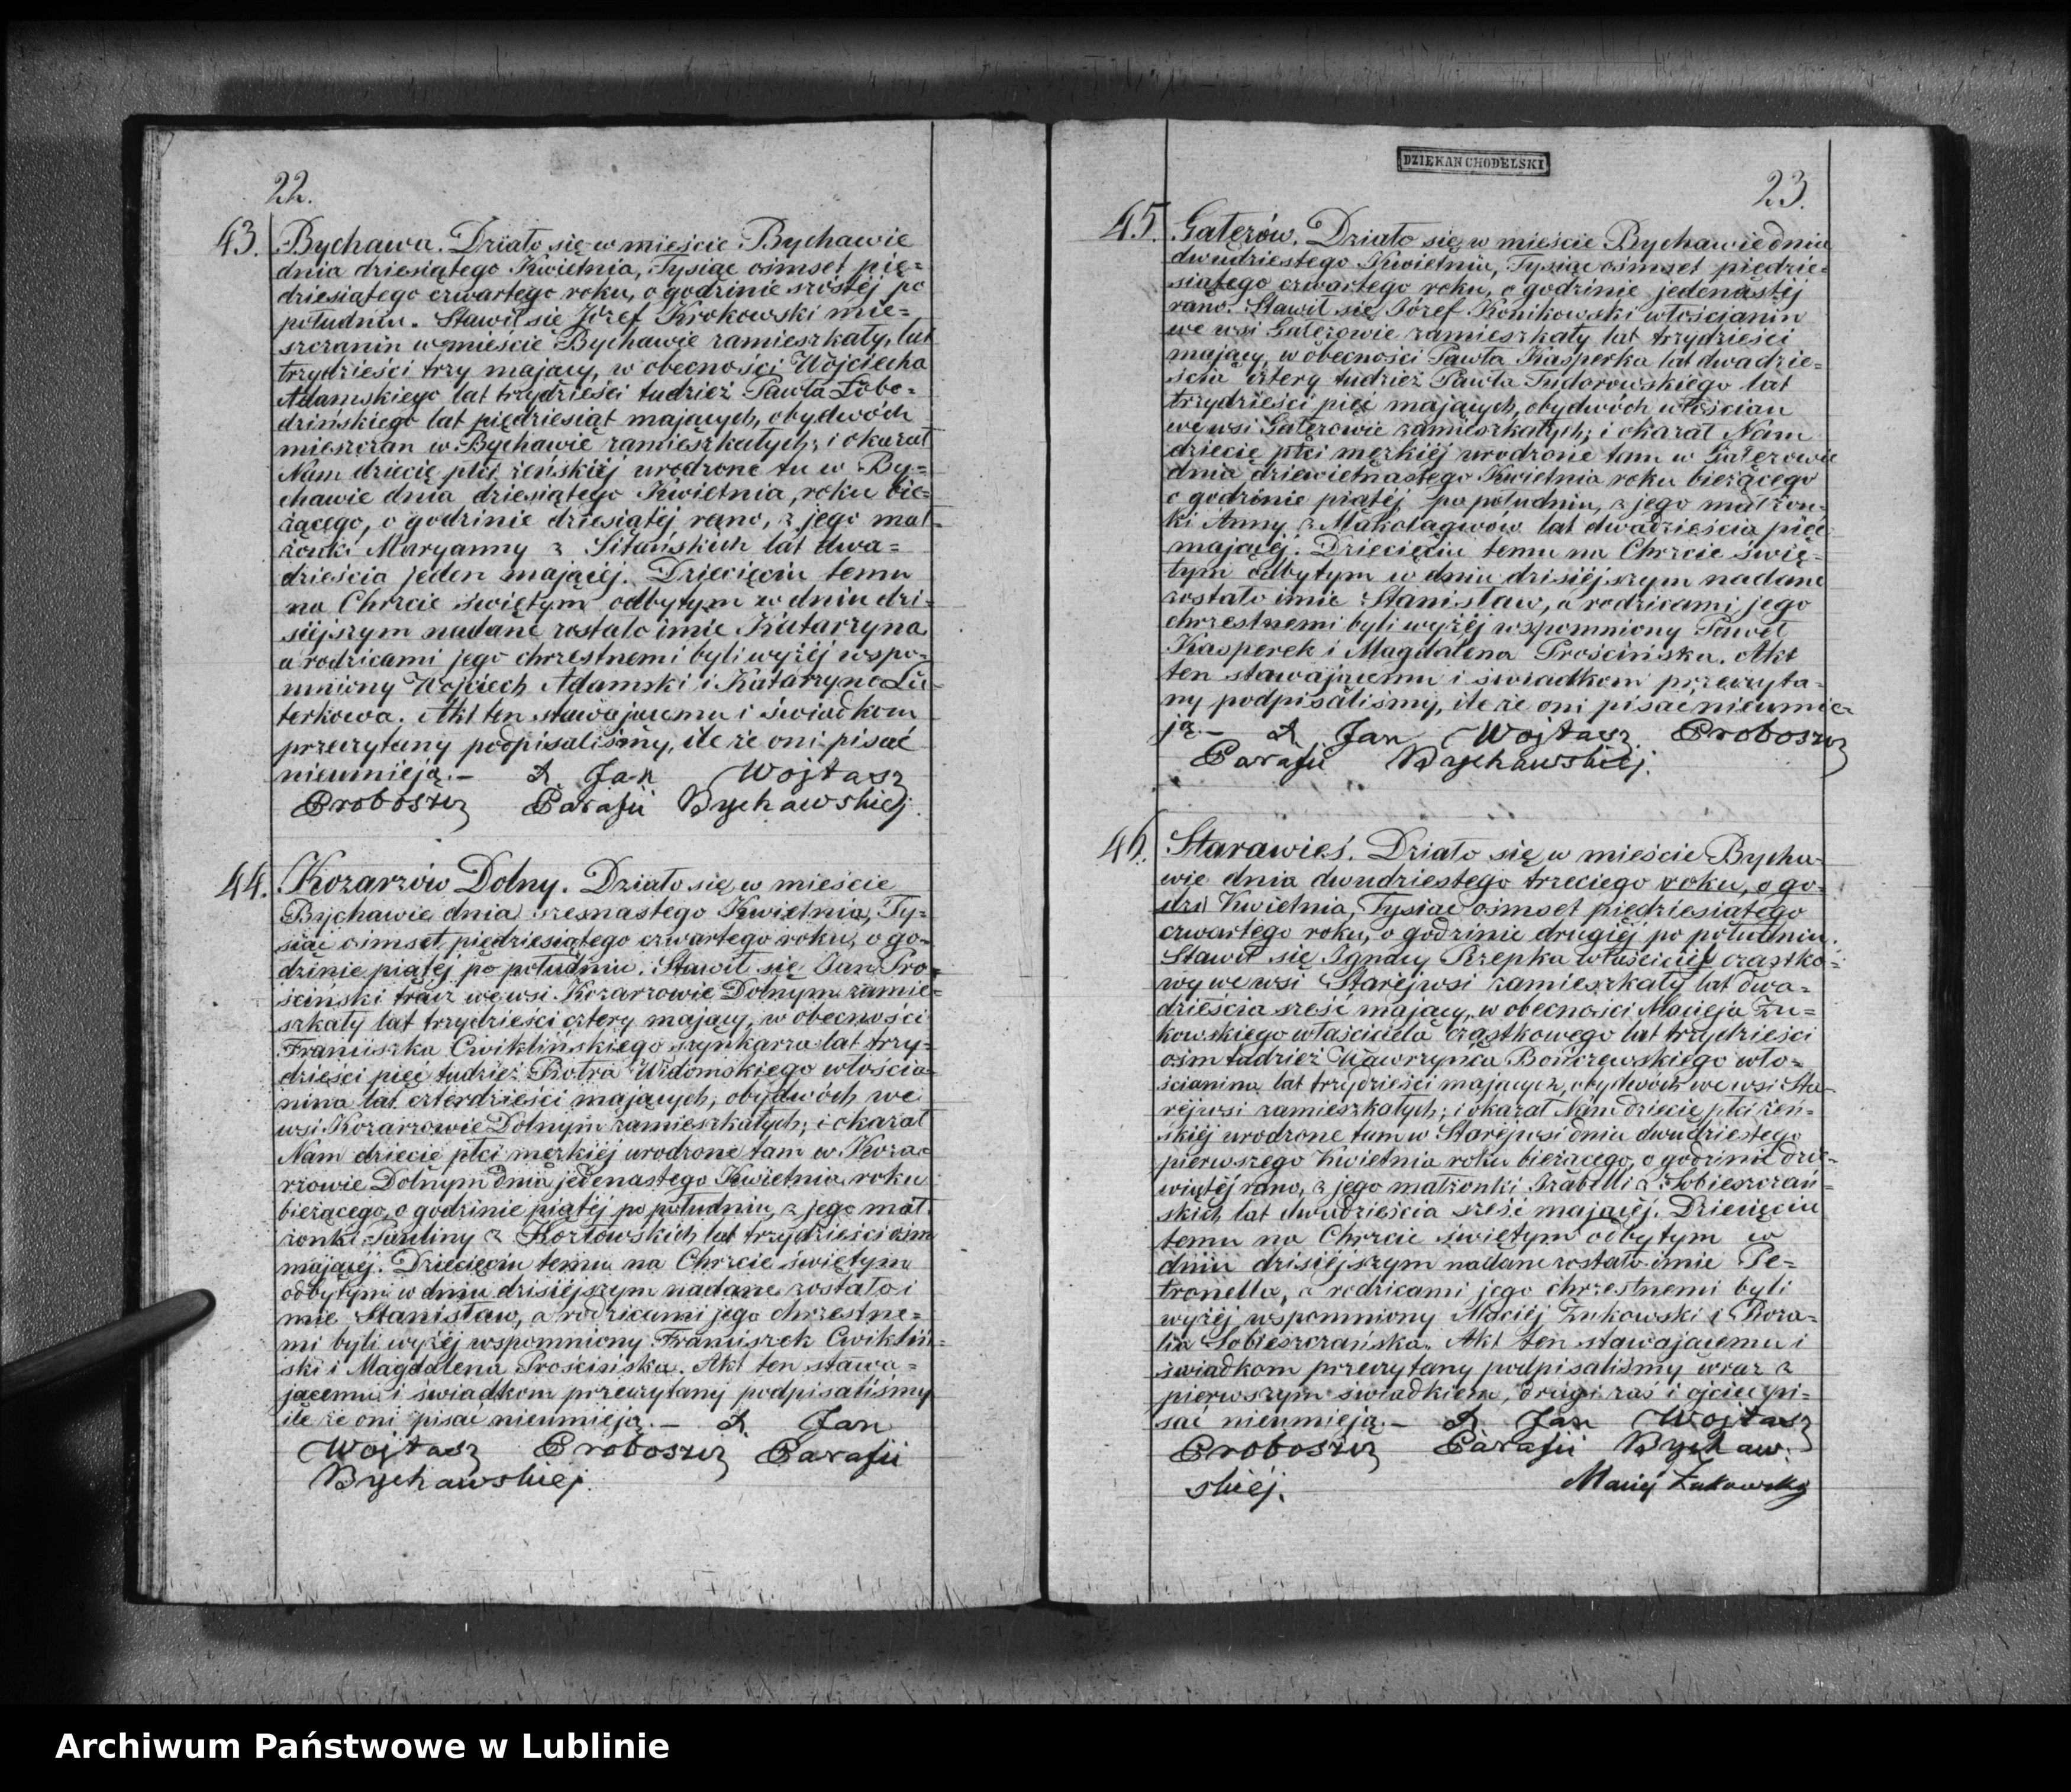 22.
43. Bychawa. Działo się w mieście Bychawie
dnia dziesiątego Kwietnia, Tysiąc ośmset pię=
dziesiątego czwartego roku, o godzinie szóstéj po
południu. Stawił się Józef Krokowski mie=
szczanin w mieście Bychawie zamieszkały, lat
trzydzieści trzy mający, w obecności Wojciecha
Adamskiego lat trzydzieści tudzież Pawła Łobo=
dzińskiego lat piędziesiąt mających, obydwóch
mieszczan w Bychawie zamieszkałych; i okazał
Nam dziecię płci żeńskiéj urodzone tu w By=
chawie dnia dziesiątego Kwietnia, roku bie=
żącego, o godzinie dziesiątéj rano, z jego mał=
żonki Maryanny z Sitańskich lat dwa=
dzieścia jeden mającéj. Dziecięciu temu
na Chrzcie świętym odbytym w dniu dzi=
siéjszym nadane zostało imie Katarzyna
a rodzicami jego chrzestnemi byli wyżéj wspo=
mniony Wojciech Adamski i Katarzyna Lu=
terkowa. Akt ten stawającemu i świadkom
przeczytany podpisaliśmy, ile że oni pisać
nieumieją.— X Jan Wojtasz
Proboszcz Parafii Bychawskiéj.
44. Kozarzów Dolny. Działo się w mieście
Bychawie dnia szesnastego Kwietnia, Ty=
siąc ośmset pięedziesiątego czwartego roku, o go=
dzinie piątéj po południu. Stawił się Jan Pro=
ściński tracz we wsi Kozarzowie Dolnym zamie=
szkały lat trzydzieści cztery mający, w obecności
Franciszka Cwiklińskiego szynkarza lat trzy=
dzieści pięć tudzież Piotra Widomskiego włościa=
nina lat czterdzieści mających, obydwóch we
wsi Kozarzowie Dolnym zamieszkałych; i okazał
Nam dziecie płci męzkiéj urodzone tam w Koza=
rzowie Dolnym dnia jedenastego Kwietnia roku
bieżącego, o godzinie piątéj po południu, z jego mał=
żonki Pauliny z Kozłowskich lat trzydzieści ośm
mającéj. Dziecięciu temu na Chrzcie świętym
odbytym w dniu dzisiéjszym nadane zostało i
mie Stanisław, a rodzicami jego chrzestne=
mi byli wyżéj wspomniony Franciszek Cwikliń=
ski i Magdalena Prościńska. Akt ten stawa=
jącemu i świadkom przeczytany podpisaliśmy
ile że oni pisać nieumieją.— X Jan
Wojtasz Proboszcz Parafii
Bychawskiéj.
DZIEKAN CHODELSKI
23.
45. Gałęzów. Działo się w mieście Bychawie dnia
dwudziestego Kwietnia, Tysiąc ośmset pięedzie=
siątego czwartego roku, o godzinie jedenastéj
rano. Stawił się Józef Konikowski włościanin
we wsi Gałęzowie zamieszkały lat trzydzieści
mający, w obecności Pawła Kasperka lat dwadzie=
ścia cztery tudzież Pawła Tudorowskiego lat
trzydzieści pięć mających, obydwóch włościan
we wsi Gałęzowie zamieszkałych; i okazał Nam
dziecię płci męzkiéj urodzone tam w Gałęzowie
dnia dziewietnastego Kwietnia roku bieżącego
o godzinie piątéj po południu, z jego małżon=
ki Anny z Makolągwów lat dwadzieścia pięć
mającéj. Dziecięciu temu na Chrzcie świę=
tym odbytym w dniu dzisiéjszym nadane
zostało imie Stanisław, a rodzicami jego
chrzestnemi byli wyżéj wspomniony Paweł
Kasperek i Magdalena Prościńska. Akt
ten stawającemu i świadkom przeczyta=
ny podpisaliśmy, ile że oni pisać nieumie=
ją.— X Jan Wojtasz Proboszcz
Parafii Bychawskiéj.
46. Starawieś. Działo się w mieście Bycha=
wie dnia dwudziestego trzeciego roku, o go=
dzi Kwietnia, Tysiąc ośmset pięedziesiątego
czwartego roku, o godzinie drugiéj po południu.
Stawił się Ignacy Rzepka właściciel cząstko=
wy we wsi Staréjwsi zamieszkały lat dwa=
dzieścia sześć mający, w obecności Macieja Żu=
kowskiego właściciela cząstkowego lat trzydzieści
ośm tudzież Wawrzyńca Bończewskiego wło=
ścianina lat trzydzieści mających, obydwóch we wsi Sta=
réjwsi zamieszkałych; i okazał Nam dziecię płci żeń=
skiéj urodzone tam w Staréjwsi dnia dwudziestego
pierwszego Kwietnia roku bieżącego, o godzinie dzie=
wiątéj rano, z jego małżonki Izabelli z Sobieszczań=
skich lat dwudzieścia sześć mającéj. Dziecięciu
temu na Chrzcie świętym odbytym w
dniu dzisiéjszym nadane zostało imie Pe=
tronella, a rodzicami jego chrzestnemi byli
wyżéj wspomniony Maciéj Żukowski i Roza=
lia Sobieszczańska. Akt ten stawającemu i
świadkom przeczytany podpisaliśmy wraz z
pierwszym świadkiem, drugi zaś i ojciec pi=
sać nieumieją.— X Jan Wojtasz
Proboszcz Parafii Bychaw.
skiéj. Maciéj Żukowski
Archiwum Państwowe w Lublinie